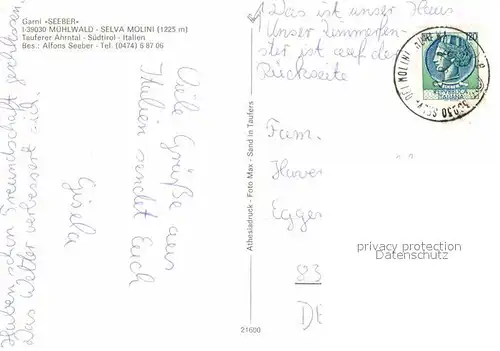 Garni «SEEBER»
I-39030 MÜHLWALD - SELVA MOLINI (1225 m)
Tauferer Ahrntal - Südtirol - Italien
Bes.: Alfons Seeber - Tel. (0474) 6 87 06
Viele Grüße aus
Italien sendet Euch
Gisela
Haben schon Freundschaft geschlossen.
Das Wetter verbessert sich.
Athesiadruck - Foto Max - Sand in Taufers
21600
Das ist unser Haus
Unser Zimmerfen-
ster ist auf der
Rückseite
120
39030 SELVA DEI MOLINI
Fam.
Egge
83
privacy protection
Datenschutz